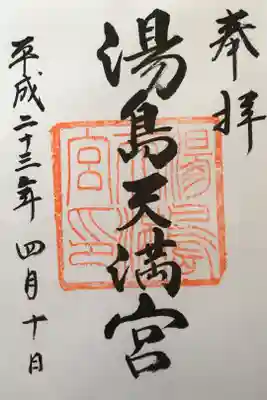 奉拝
湯島天満宮
平成二十三年 四月十日